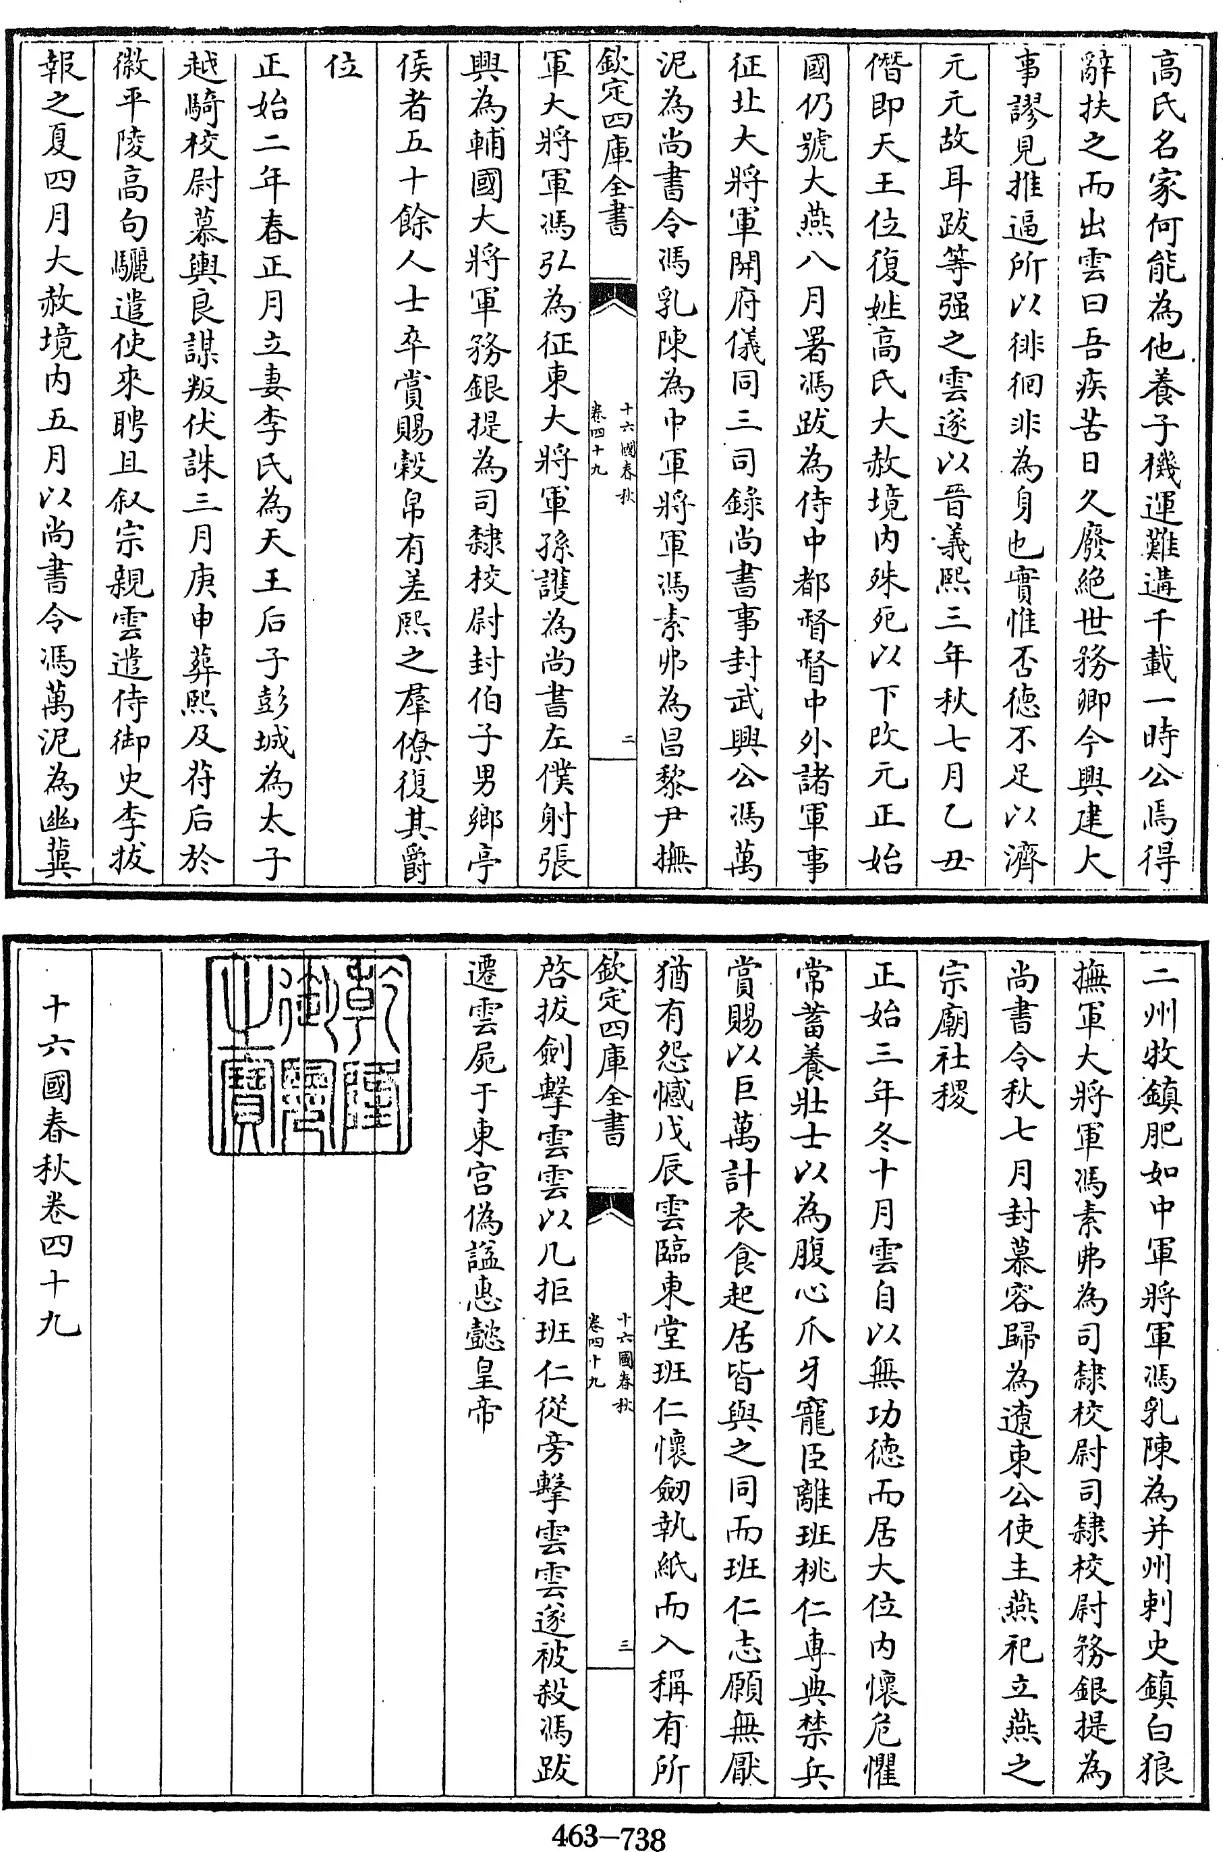 高氏名家何能為他養子機運難遘千載一時公焉得
辭扶之而出雲曰吾疾苦日久廢絶世務卿今興建大
事謬見推逼所以徘徊非為身也實惟否德不足以濟
元元故耳跋等强之雲遂以晉義熙三年秋七月乙丑
僭即天王位復姓高氏大赦境内殊死以下改元正始
國仍號大燕八月署馮跋為侍中都督督中外諸軍事
征北大將軍開府儀同三司錄尚書事封武興公馮萬
泥為尚書令馮乳陳為中軍將軍馮素弗為昌黎尹撫
欽定四庫全書
十六國春秋
卷四十九
二
軍大將軍馮弘為征東大將軍孫護為尚書左僕射張
興為輔國大將軍務銀提為司隸校尉封伯子男鄉亭
侯者五十餘人士卒賞賜穀帛有差熙之羣僚復其爵
位
正始二年春正月立妻李氏為天王后子彭城為太子
越騎校尉慕輿良謀叛伏誅三月庚申葬熙及苻后於
徽平陵高句驪遣使來聘且叙宗親雲遣侍御史李拔
報之夏四月大赦境内五月以尚書令馮萬泥為幽冀
二州牧鎮肥如中軍將軍馮乳陳為并州刺史鎮白狼
撫軍大將軍馮素弗為司隸校尉司隸校尉務銀提為
尚書令秋七月封慕容歸為遼東公使主燕祀立燕之
宗廟社稷
正始三年冬十月雲自以無功德而居大位内懷危懼
常蓄養壯士以為腹心爪牙寵臣離班桃仁專典禁兵
賞賜以巨萬計衣食起居皆與之同而班仁志願無厭
猶有怨憾戊辰雲臨東堂班仁懷劒執紙而入稱有所
欽定四庫全書
十六國春秋
卷四十九
三
啓拔劍擊雲雲以几拒班仁從旁擊雲雲遂被殺馮跋
遷雲屍于東宫偽謚惠懿皇帝
乾隆御覽之寶
十六國春秋卷四十九
463-738